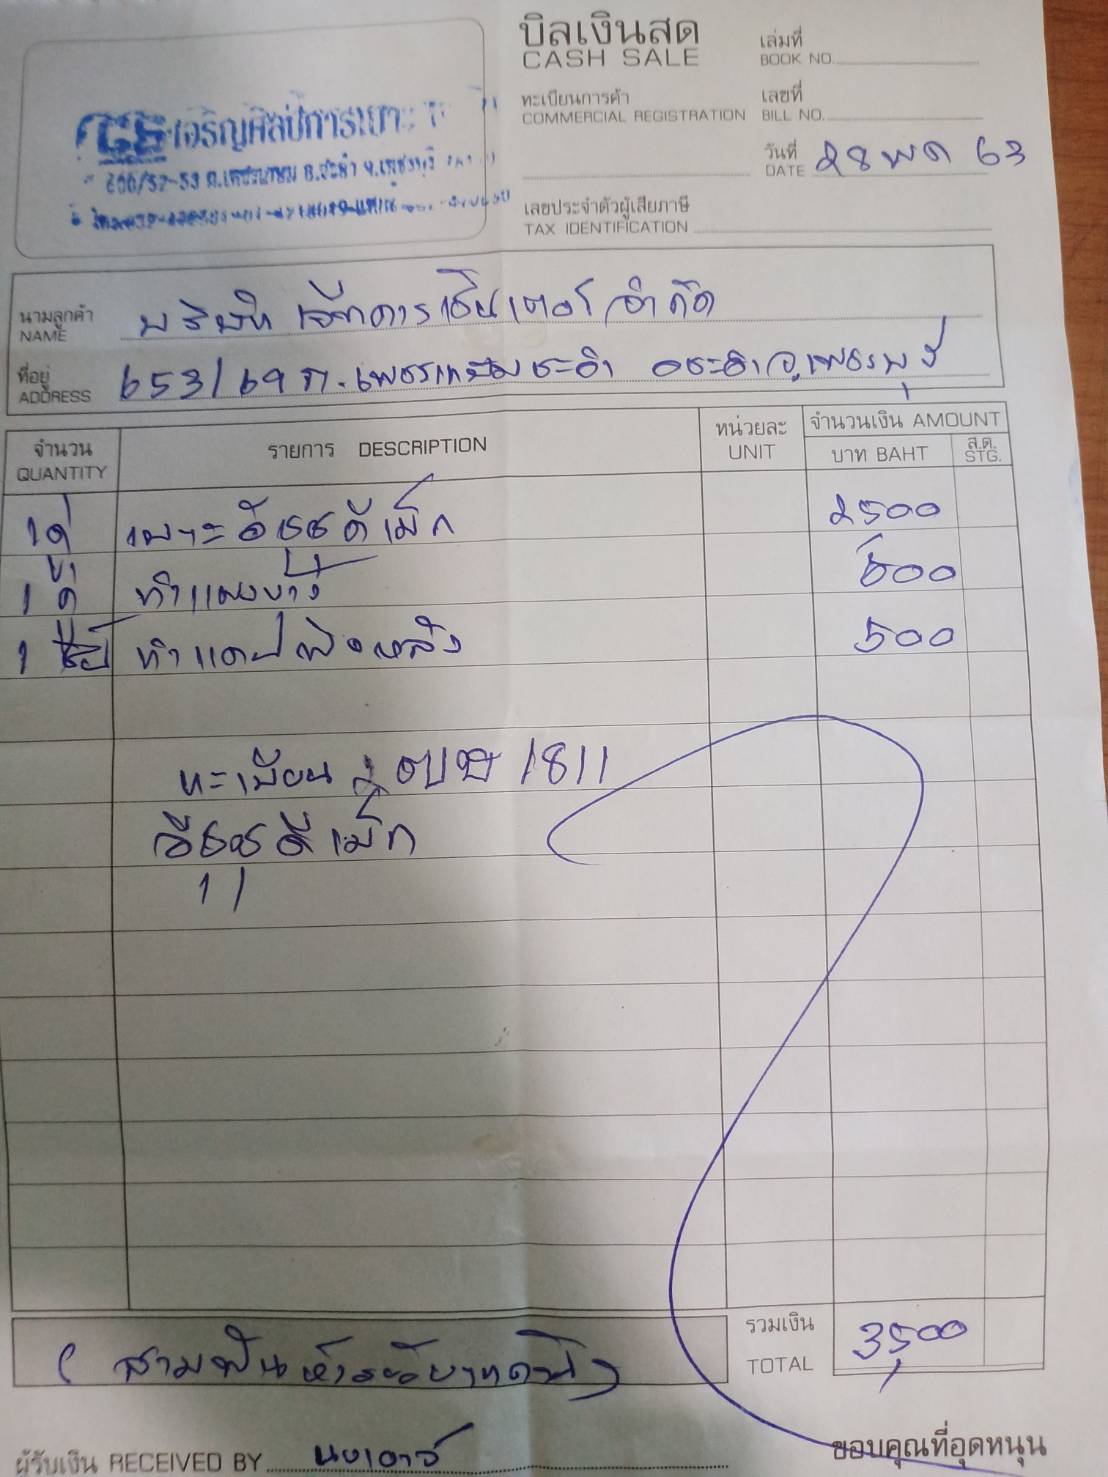 บิลเงินสด
CASH SALE
เล่มที่
BOOK NO.
ทะเบียนการค้า
COMMERCIAL REGISTRATION
เลขที่
BILL NO.
วันที่
DATE 28 พค 63
เลขประจำตัวผู้เสียภาษี
TAX IDENTIFICATION
เจริญศิลป์การเบาะ
นามลูกค้า
NAME บริษัท เซ็นเตอร์ จำกัด
ที่อยู่
ADDRESS 653/69 ถ. เพชรเกษม ชะอำ อ ชะอำ จ. เพชรบุรี
จำนวน
QUANTITY
รายการ DESCRIPTION
หน่วยละ
UNIT
จำนวนเงิน AMOUNT
บาท BAHT
ส.ต.
STG.
1 คู่ เบาะ อีซูซุ ดีแม็ก 2500
1 ทำแผงข้าง 500
1 ทำแคป หลัง 500
ทะเบียน 1811
อีซูซุ ดีแม็ก
รวมเงิน
TOTAL 3,500
(สามพันห้าร้อยบาทถ้วน)
ผู้รับเงิน RECEIVED BY
ขอบคุณที่อุดหนุน